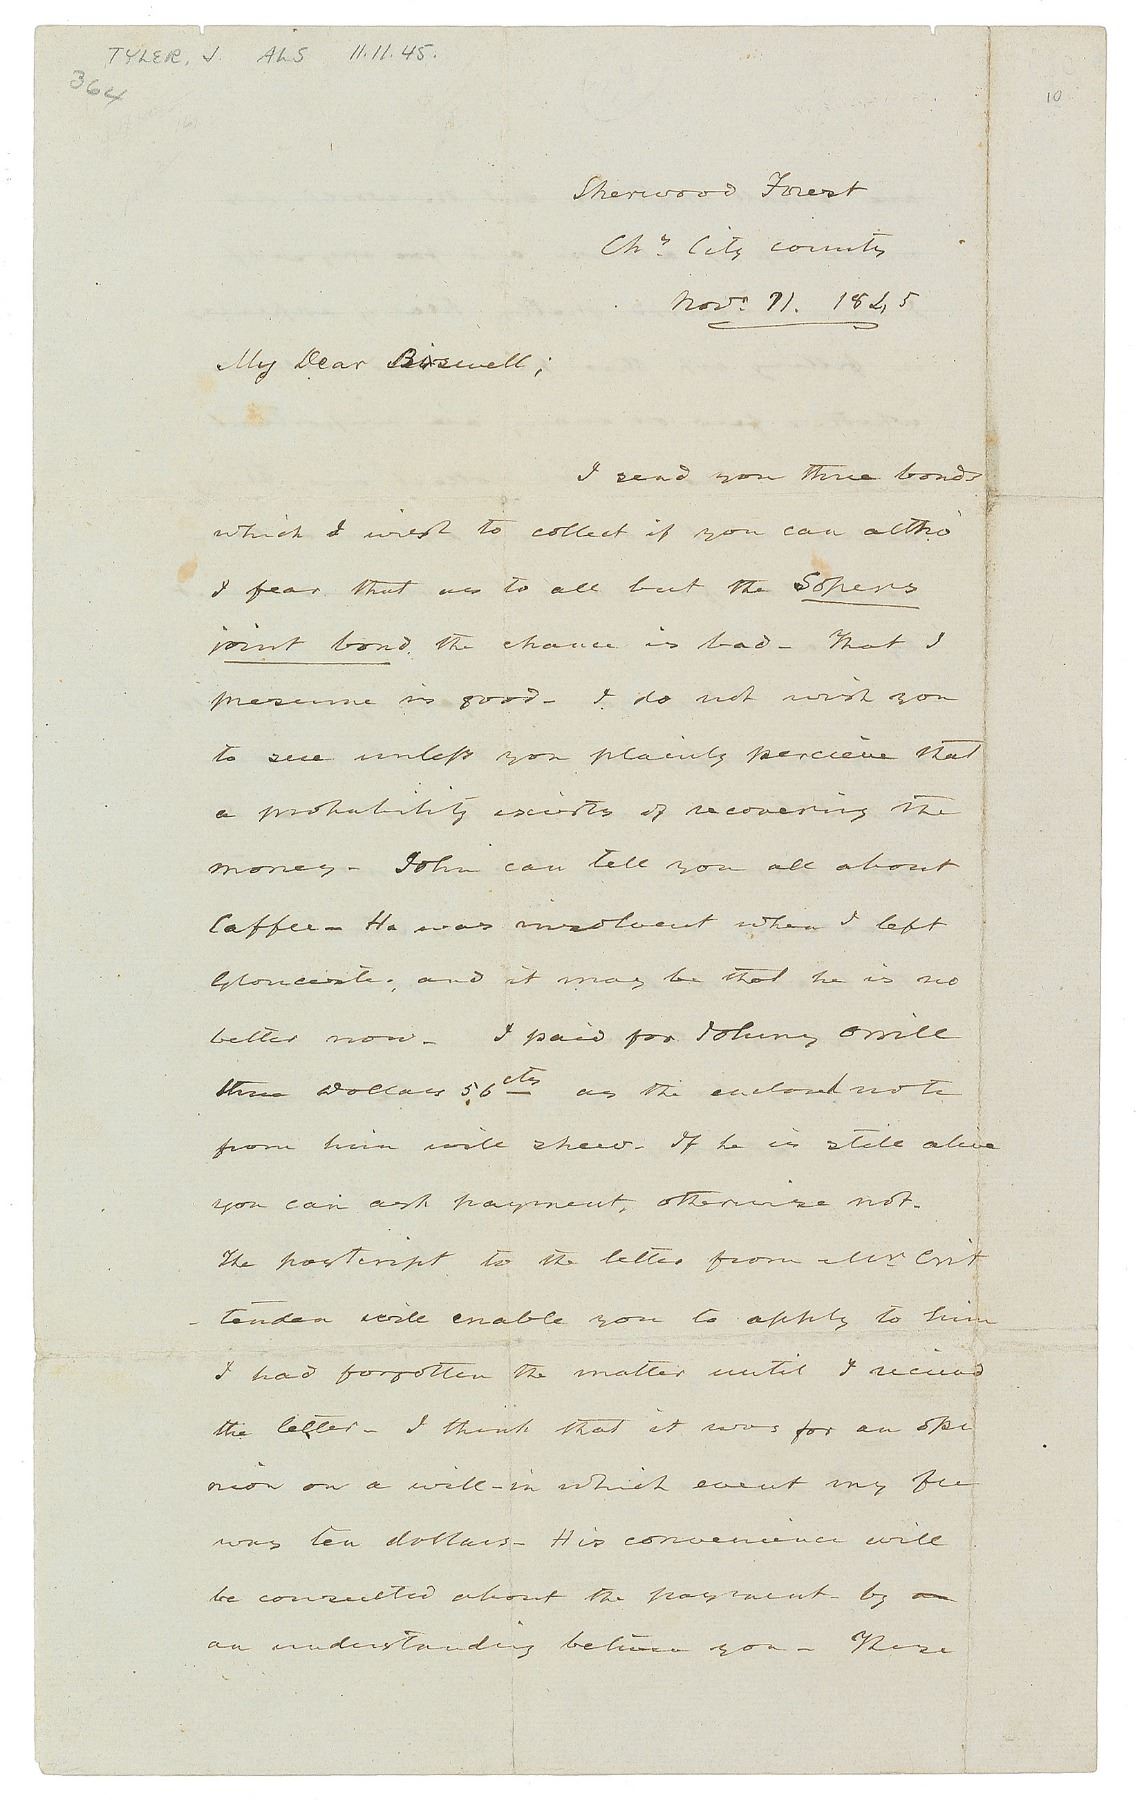 TYLER, J. ALS 11.11.45.
364
10
Sherwood Forest
Chs. City county
Novr. 11. 1845
My Dear
I send you three bonds
which I wish to collect if you can altho'
I fear that as to all but the Sopers
joint bond. the chance is bad - That I
presume is good - I do not wish you
to sue unless you plainly percieve that
a probability exists of recovering the
money - John can tell you all about
Caffee - He was insolvent when I left
Gloucester, and it may be that he is no
better now - I paid for Johnny Orrill
three Dollars 56 cts as the enclosed note
from him will shew - If he is still alive
you can ask payment, otherwise not.
The postcript to the letter from Mr. Crit
- tenden will enable you to apply to him
I had forgotten the matter until I recieved
the letter - I think that it was for an opi
nion on a will - in which event my fee
was ten dollars - His convenience will
be consulted about the payment - by
an understanding between you - These